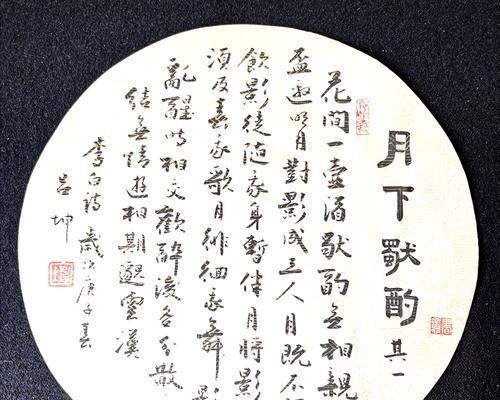 月下獨酌 其一
花間一壺酒獨酌無相親
盃邀明月對影成三人月既不
飲影徒隨我身暫伴月將影
須及春我歌月徘徊我舞影
亂醒時相交歡醉後各分散
結無情遊相期邈雲漢
李白詩歲次庚子春
呂坤